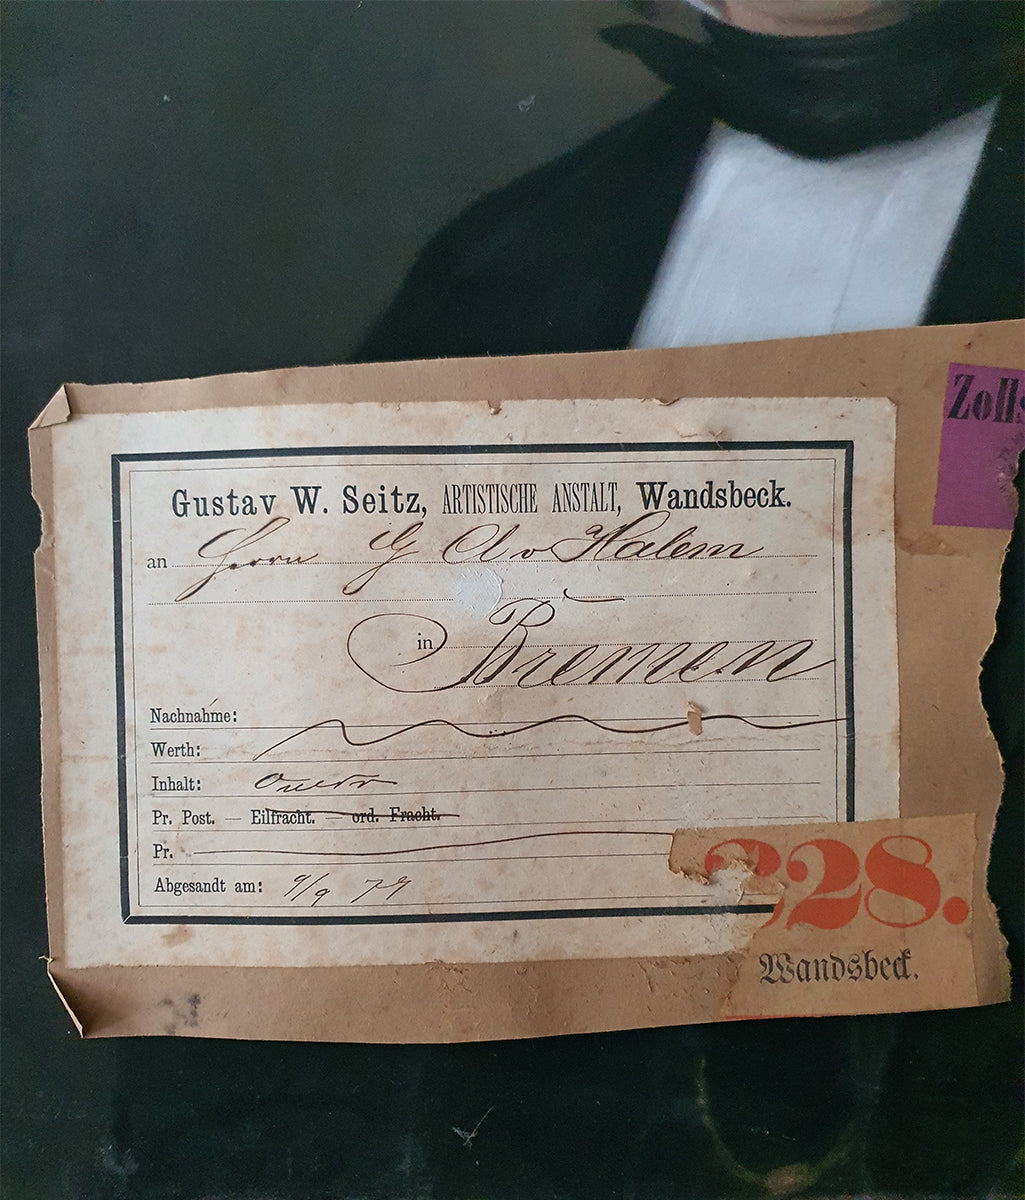 Gustav W. Seitz, ARTISTISCHE ANSTALT, Wandsbeck.
an Herrn G A v Halem
in Bremen
Nachnahme:
Werth:
Inhalt:
Pr. Post. — Eilfracht. — ord. Fracht.
Pr.
Abgesandt am: 9/9 79
Zolls
28.
Wandsbeck.